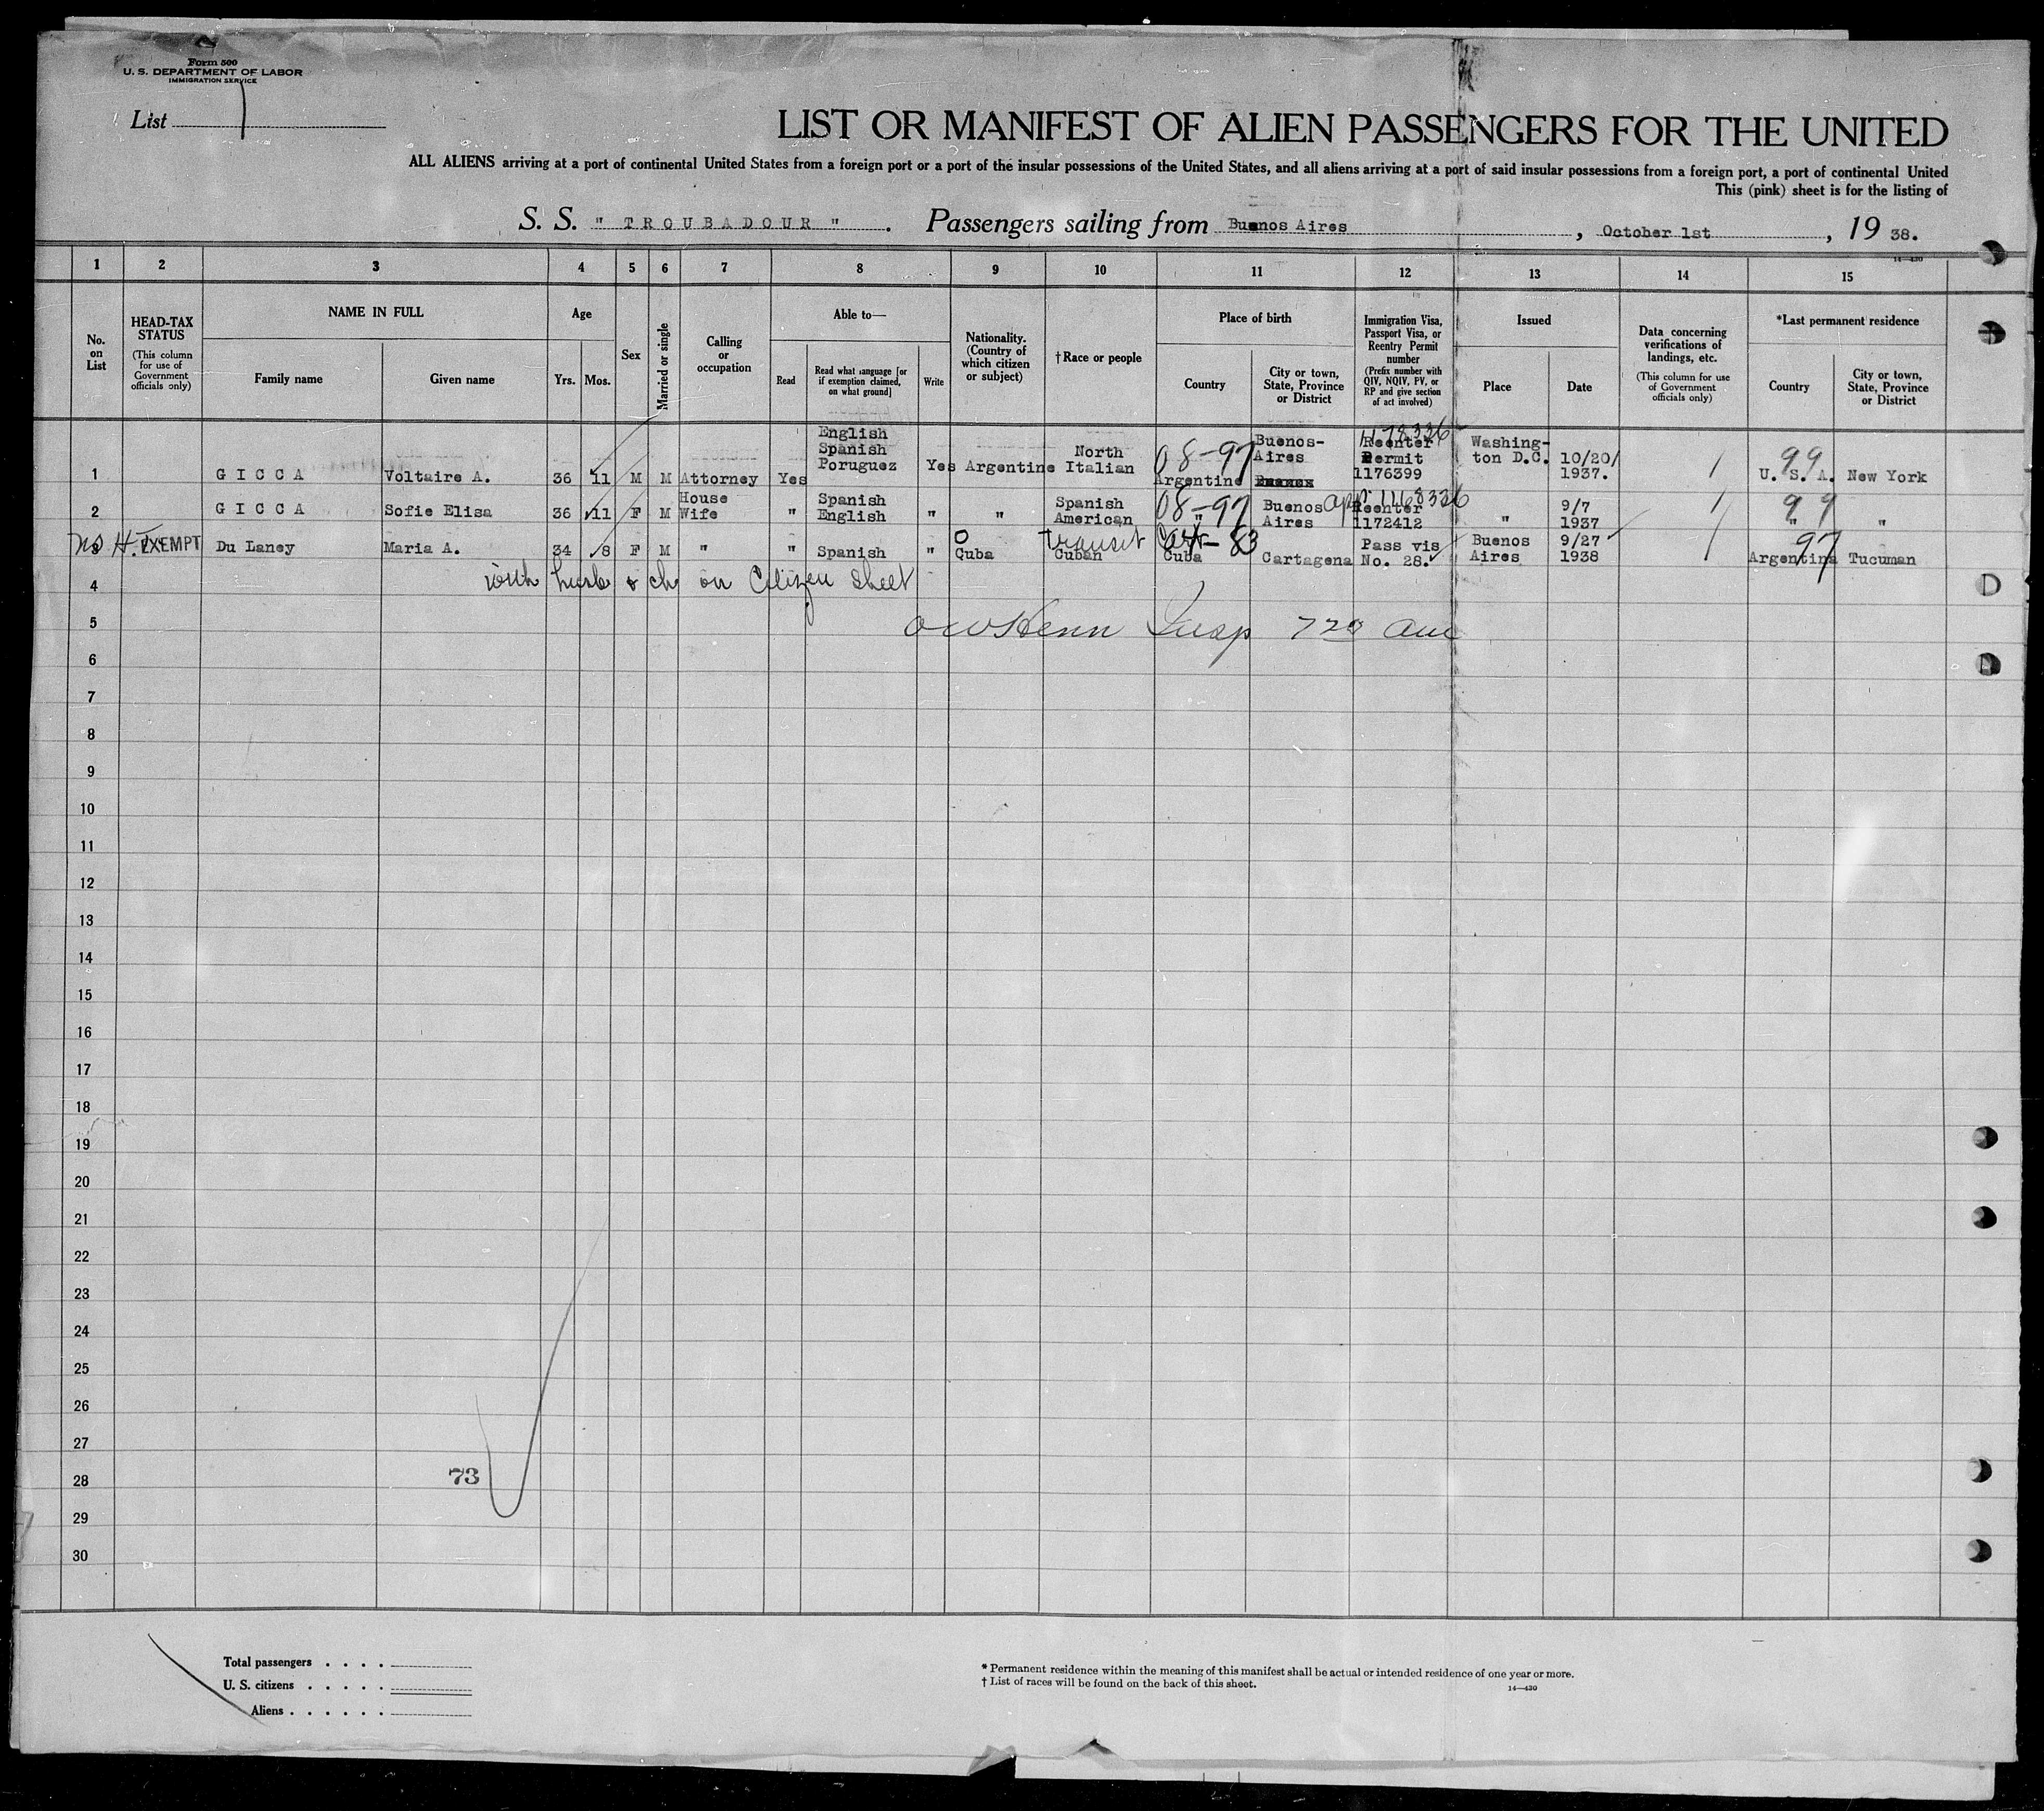 Form 500
U. S. DEPARTMENT OF LABOR
IMMIGRATION SERVICE
List 1
LIST OR MANIFEST OF ALIEN PASSENGERS FOR THE UNITED
ALL ALIENS arriving at a port of continental United States from a foreign port or a port of the insular possessions of the United States, and all aliens arriving at a port of said insular possessions from a foreign port, a port of continental United
This (pink) sheet is for the listing of
S. S. " TROUBADOUR " . Passengers sailing from Buenos Aires , October 1st , 19 38.
14—430
1 2 3 4 5 6 7 8 9 10 11 12 13 14 15
No. on List
HEAD-TAX STATUS (This column for use of Government officials only)
NAME IN FULL
Family name Given name
Age
Yrs. Mos.
Sex
Married or single
Calling or occupation
Able to—
Read Read what language [or if exemption claimed, on what ground] Write
Nationality. (Country of which citizen or subject)
†Race or people
Place of birth
Country City or town, State, Province or District
Immigration Visa, Passport Visa, or Reentry Permit number (Prefix number with QIV, NQIV, PV, or RP and give section of act involved)
Issued
Place Date
Data concerning verifications of landings, etc. (This column for use of Government officials only)
*Last permanent residence
Country City or town, State, Province or District
1 GICCA Voltaire A. 36 11 M M Attorney Yes English Spanish Poruguez Yes Argentine North Italian 08-97 Argentine Buenos-Aires 1178336 Reenter Permit 1176399 Washington D.C. 10/20/1937. 99 U. S. A. New York
2 GICCA Sofie Elisa 36 11 F M House Wife " Spanish English " " Spanish American 08-97 " Buenos Aires app. 1168336 Reenter 1172412 " 9/7 1937 99 " "
3 no H.T. EXEMPT Du Laney Maria A. 34 8 F M " " Spanish " 0 Cuba transit Cuban 83 Cuba Cartagena Pass vis No. 28. Buenos Aires 9/27 1938 97 Argentina Tucuman
4 with husb & ch on Citizen sheet
5 Insp 720 am
6
7
8
9
10
11
12
13
14
15
16
17
18
19
20
21
22
23
24
25
26
27
28 73
29
30
Total passengers . . . .
U. S. citizens . . . . .
Aliens . . . . . .
* Permanent residence within the meaning of this manifest shall be actual or intended residence of one year or more.
† List of races will be found on the back of this sheet.
14—430